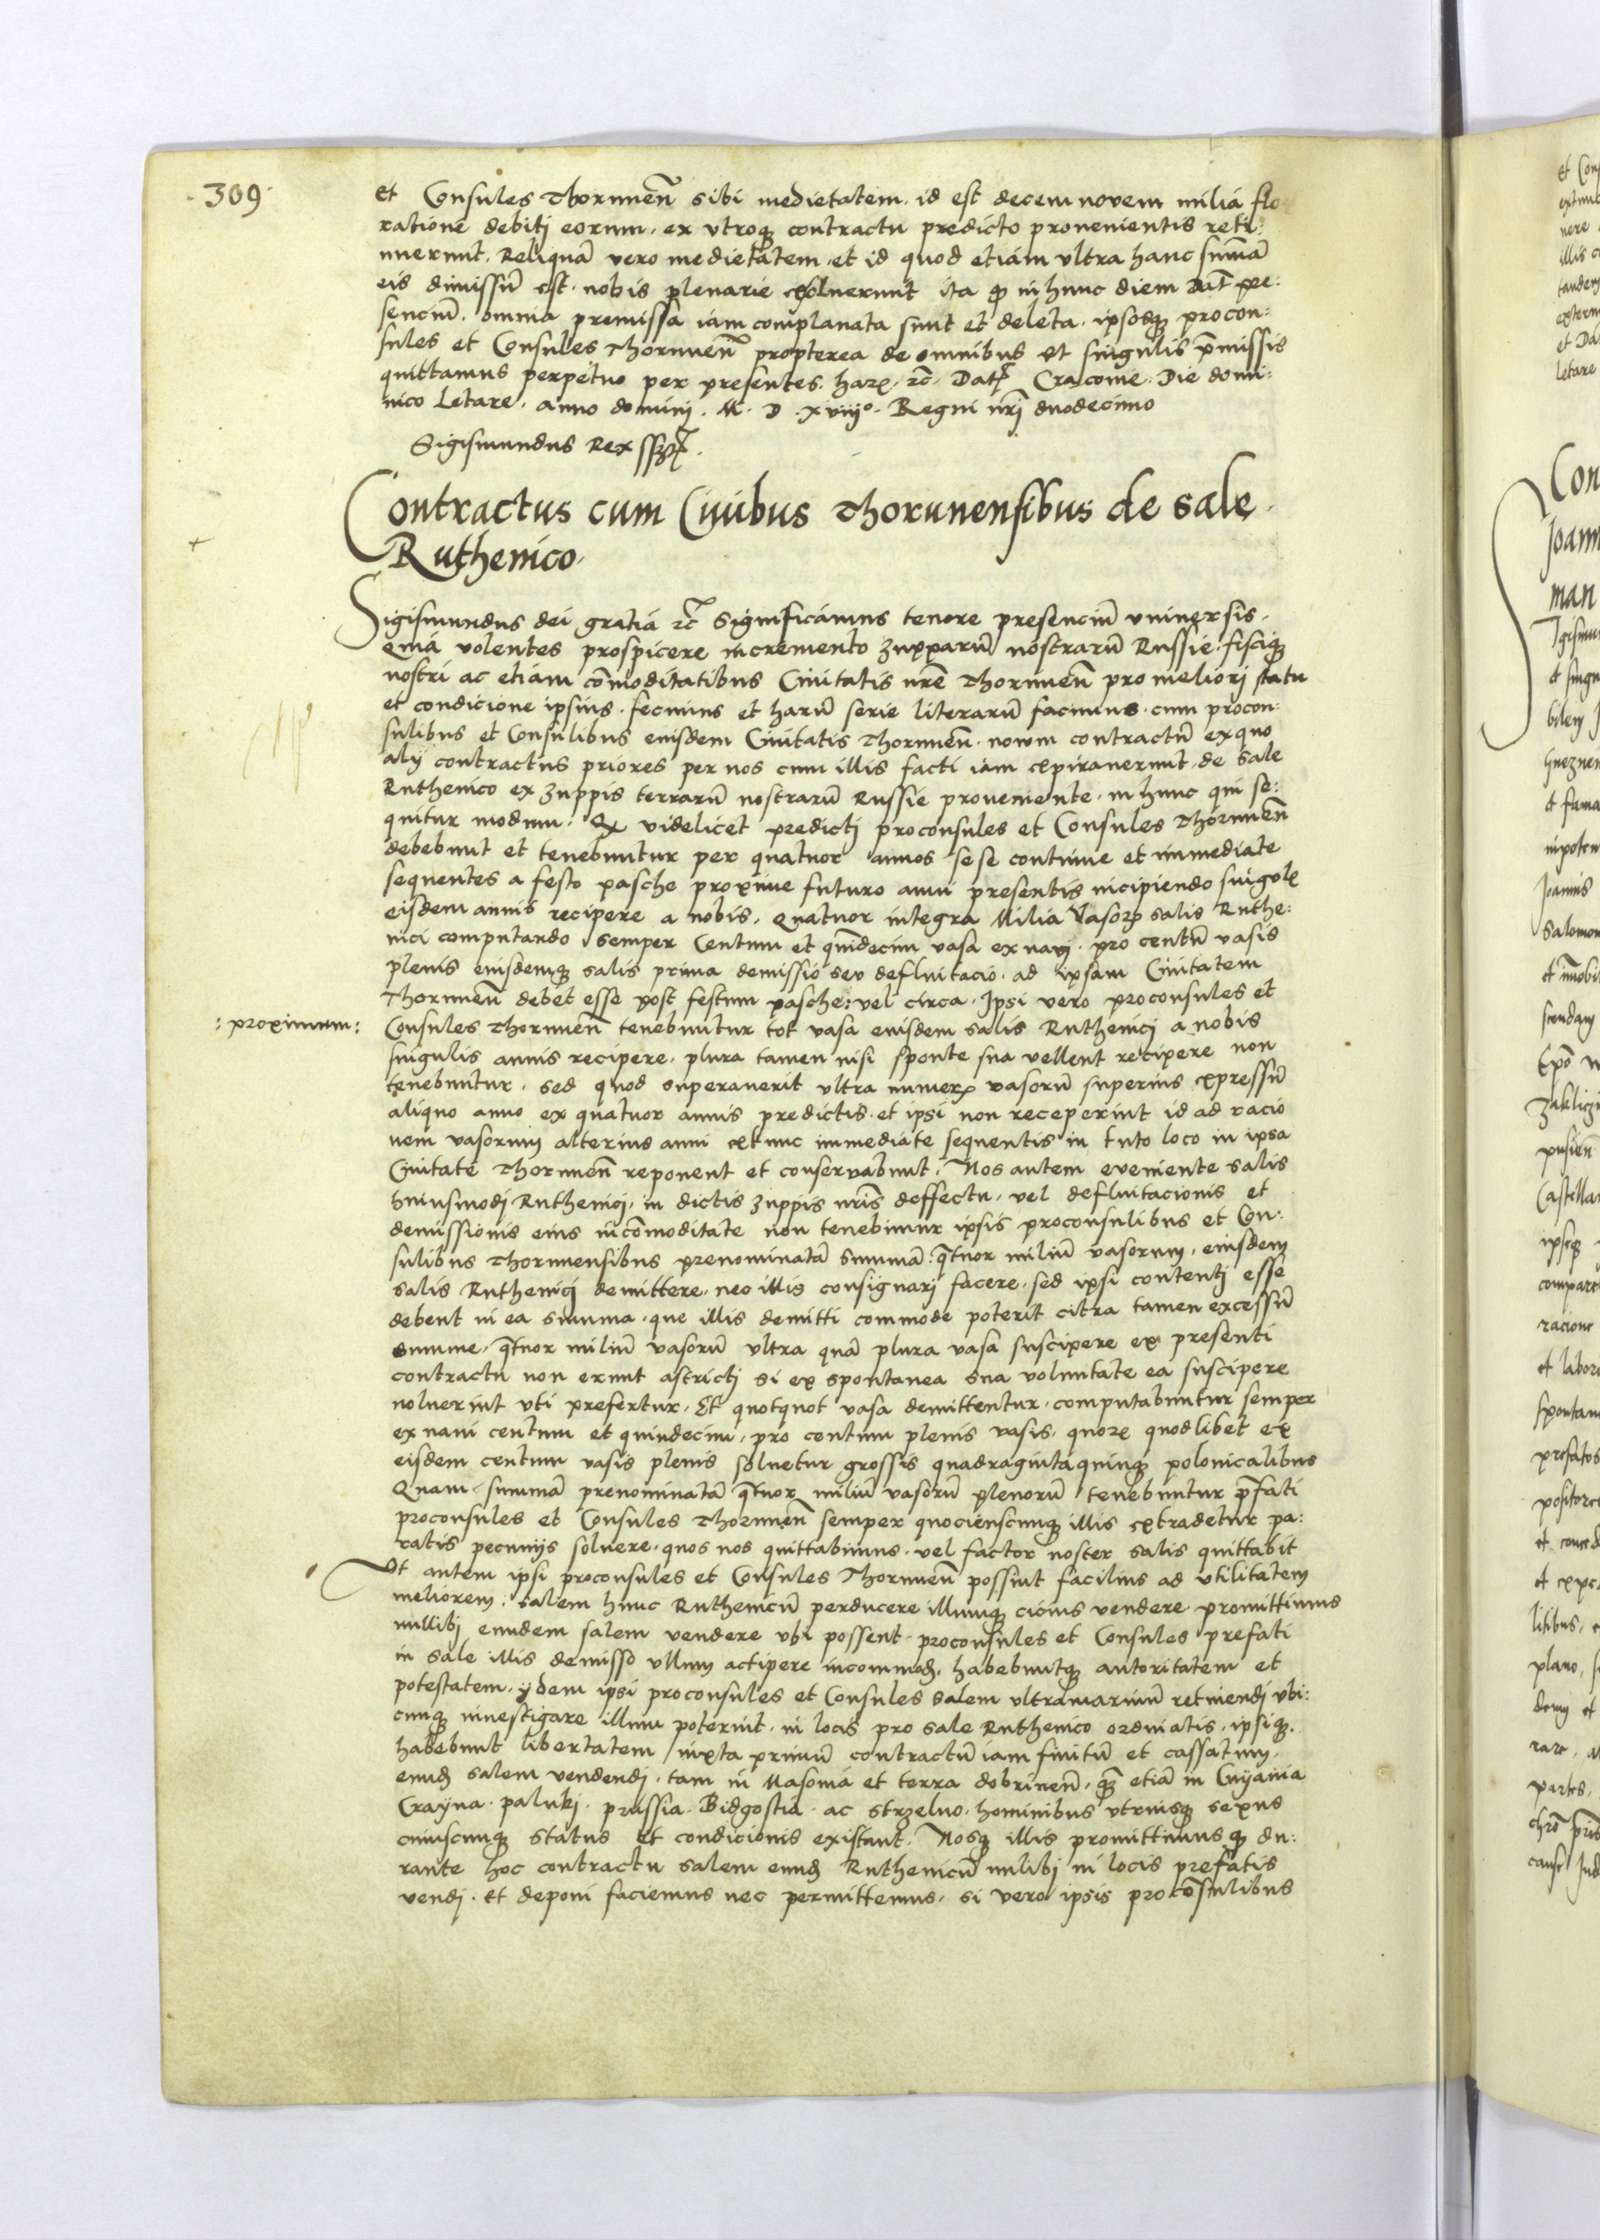 309
et Consules Thorunen̄ sibi medietatem. id est decem novem milia flo
ratione debitj eorum. ex utroq; contractu predicto provenientis reti:
nuerunt. Reliquā vero medietatem. et id quod etiam ultra hanc sum̄ā
eis dimissū est. nobis plenarie exoluerunt ita q̄ in hunc diem Dat̄ pre:
senciū. omnia premissa iam complanata sunt et deleta. ipsosq; procon:
sules et Consules Thorunen̄ propterea de omnibus et singulis p̄missis
quittamus perpetuo per presentes. harꝝ. ꝛc̄. Datꝭ Cracovie. Die domi:
nico Letare. anno dominj. M. D. xviijº. Regni nr̄j duodecimo
Sigismundus Rex sszꝭ.
Contractus cum Civibus Thorunensibus de sale
Ruthenico.
Sigismundus dei gratia ꝛc̄ Significamus tenore presenciū universis.
Quia volentes prospicere incremento zupparū nostrarū Russie. fisciq;
nostri ac etiam cōmoditatibus Civitatis nr̄e Thorunen̄ pro meliorj statu
et condicione ipsius. fecimus et harū serie literarū facimus. cum procon:
sulibus et Consulibus eiusdem Civitatis Thorunen̄. novum contractū ex quo
alij contractus priores per nos cum illis facti iam expiraverunt. de Sale
Ruthenico ex zuppis terrarū nostrarū Russie proveniente. in hunc qui se:
quitur modum. Q̄ videlicet predictj proconsules et Consules Thorunen̄
debebunt et tenebuntur per quatuor annos sese continue et immediate
sequentes a festo pasche proxime futuro anni presentis incipiendo singulꝭ
eisdem annis recipere a nobis. Quatuor integra Milia Vasorꝝ salis Ruthe:
nici computando semper Centum et quīdecim vasa ex navj. pro centū vasis
plenis eiusdemq; salis prima demissio seu defluitacio. ad ipsam Civitatem
Thorunen̄ debet esse post festum pasche: vel circa. Ipsi vero proconsules et
: proximum : Consules Thorunen̄ tenebuntur tot vasa eiusdem salis Ruthenicj a nobis
singulis annis recipere. plura tamen nisi sponte sua vellent recipere non
tenebuntur. sed quod superaverit ultra numerꝝ vasorū superius expressū
aliquo anno ex quatuor annis predictis. et ipsi non receperint id ad racio
nem vasorum alterius anni extunc immediate sequentis in tuto loco in ipsa
Civitate Thorunen̄ reponent et conservabunt. Nos autem eveniente salis
huiusmodj Ruthenicj. in dictis zuppis nr̄is deffectu. vel defluitacionis et
demissionis eius īcōmoditate non tenebimur ipsis proconsulibus et Con:
sulibus Thorunensibus prenominatā Summā. q̄tuor miliū vasorum. eiusdem
salis Ruthenicj demittere. nec illis consignarj facere. sed ipsi contentj esse
debent in ea Summa. que illis demitti commode poterit citra tamen excessū
summe. q̄tuor miliū vasorū ultra quā plura vasa suscipere ex presenti
contractu non erunt astrictj si ex spontanea sua voluntate ea suscipere
noluerint uti prefertur. Et quotquot vasa demittentur. computabuntur semper
ex navi centum et quindecim. pro centum plenis vasis. quorꝝ quodlibet ex
eisdem centum vasis plenis solvetur grossis quadraginta quinq; polonicalibus
Quam summā prenominatā q̄tuor miliū vasorū plenorū tenebuntur p̄fati
proconsules et Consules Thorunen̄ semper quocienscunq; illis extradetur pa:
ratis pecunijs solvere. quos nos quittabimus. vel factor noster salis quittabit
Ut autem ipsi proconsules et Consules Thorunen̄ possint facilius ad utilitatem
meliorem. salem hunc Ruthenicū perducere illumq; cicius vendere promittimus
nullibj eundem salem vendere ubi possent. proconsules et Consules prefati
in sale illis demisso ullum accipere incommodꝭ. habebuntq; autoritatem et
potestatem. ydem ipsi proconsules et Consules Salem ultramarinū retinendj ubi:
cunq; investigare illum poterint. in locis pro sale Ruthenico ordinatis. ipsiq;.
habebunt libertatem iuxta primū contractū iam finitū et cassatum.
eundꝭ salem vendendj. tam in Masovia et terra dobrinen̄. q̄ etiā in Cuyavia
Crayna. palukj. prussia. Bidgostia. ac Strzelno. hominibus utriusq; sexus
cuiuscunq; status et condicionis existant. Nosq; illis promittimus q̄ du:
rante hoc contractu salem eundꝭ Ruthenicū nulibj in locis prefatis
vendj. et deponi faciemus nec permittemus. si vero ipsis procōsulibus